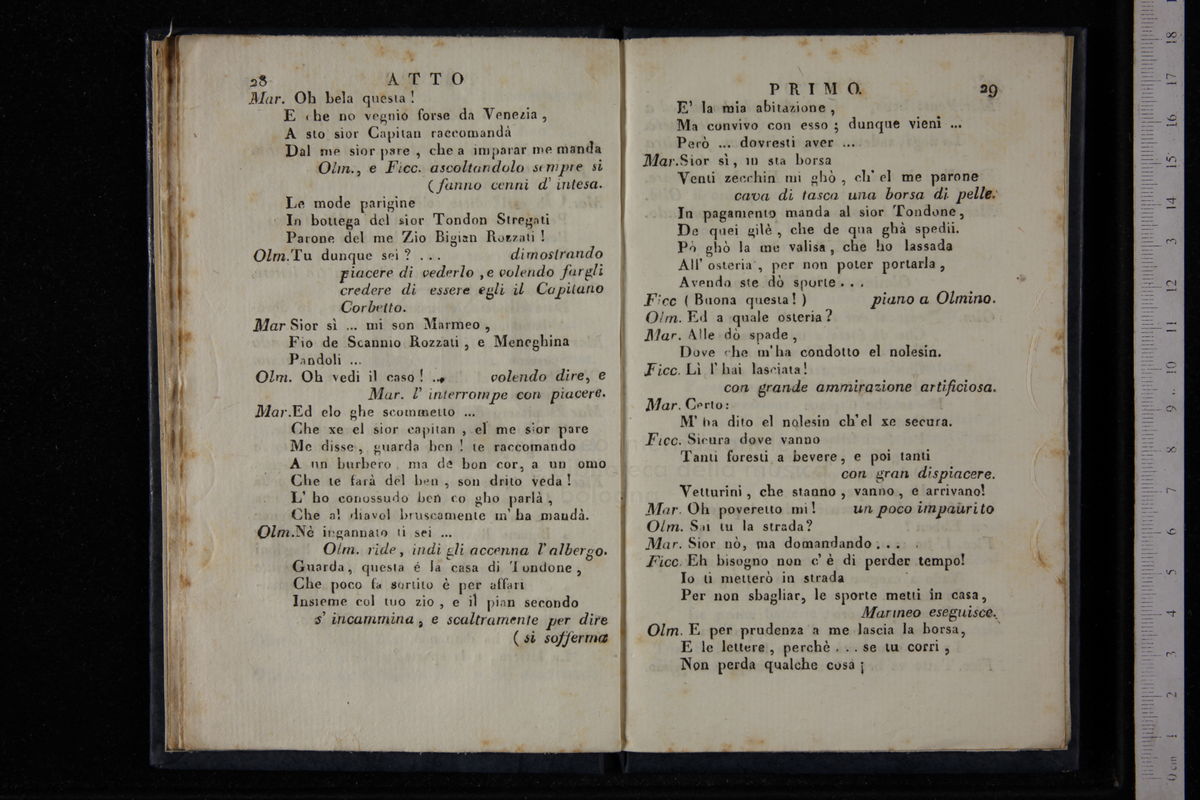 28 ATTO
Mar. Oh bela questa!
E che no vegnio forse da Venezia,
A sto sior Capitan raccomandà
Dal me sior pare, che a imparar me manda
Olm., e Ficc. ascoltandolo sempre si
(fanno cenni d' intesa.
Le mode parigine
In bottega del sior Tondon Stregati
Parone del me Zio Bigian Rozzati!
Olm. Tu dunque sei? ... dimostrando
piacere di vederlo, e volendo fargli
credere di essere egli il Capitano
Corbetto.
Mar Sior sì ... mi son Marmeo,
Fio de Scannio Rozzati, e Meneghina
Pandoli ...
Olm. Oh vedi il caso! ... volendo dire, e
Mar. l' interrompe con piacere.
Mar. Ed elo ghe scommetto ...
Che xe el sior capitan, el me sior pare
Me disse, guarda ben! te raccomando
A un burbero, ma de bon cor, a un omo
Che te farà del ben, son drito veda!
L' ho conossudo ben co gho parlà,
Che al diavol bruscamente m' ha mandà.
Olm. Nè ingannato ti sei ...
Olm. ride, indi gli accenna l' albergo.
Guarda, questa é la casa di Tondone,
Che poco fa sortito è per affari
Insieme col tuo zio, e il pian secondo
s' incammina, e scaltramente per dire
(si sofferma
PRIMO. 29
E' la mia abitazione,
Ma convivo con esso; dunque vieni ...
Però ... dovresti aver ...
Mar. Sior sì, in sta borsa
Venti zecchin mi ghò, ch' el me parone
cava di tasca una borsa di pelle.
In pagamento manda al sior Tondone,
De quei gilè, che de qua ghà spedii.
Pò ghò la me valisa, che ho lassada
All' osteria, per non poter portarla,
Avendo ste dò sporte ...
Ficc (Buona questa!) piano a Olmino.
Olm. Ed a quale osteria?
Mar. Alle dò spade,
Dove che m'ha condotto el nolesin.
Ficc. Lì l' hai lasciata!
con grande ammirazione artificiosa.
Mar. Certo:
M' ha dito el nolesin ch'el xe secura.
Ficc. Sicura dove vanno
Tanti foresti a bevere, e poi tanti
con gran dispiacere.
Vetturini, che stanno, vanno, e arrivano!
Mar. Oh poveretto mi! un poco impaurito
Olm. Sai tu la strada?
Mar. Sior nò, ma domandando ...
Ficc. Eh bisogno non c' è di perder tempo!
Io ti metterò in strada
Per non sbagliar, le sporte metti in casa,
Marmeo eseguisce.
Olm. E per prudenza a me lascia la borsa,
E le lettere, perchè ... se tu corri,
Non perda qualche cosa;
0 cm 1 2 3 4 5 6 7 8 9 10 11 12 13 14 15 16 17 18